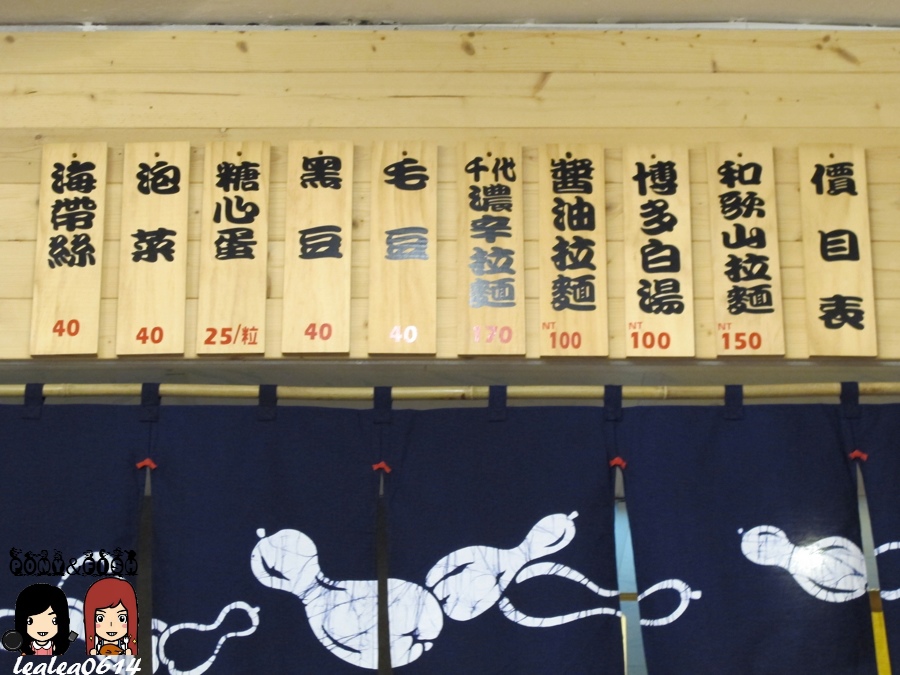 價目表
和歌山拉麵
NT
150
博多白湯
NT
100
醬油拉麵
NT
100
千代
濃辛拉麵
170
毛豆
40
黑豆
40
糖心蛋
25/粒
泡菜
40
海帶絲
40
PONY & FISH
lealea0614